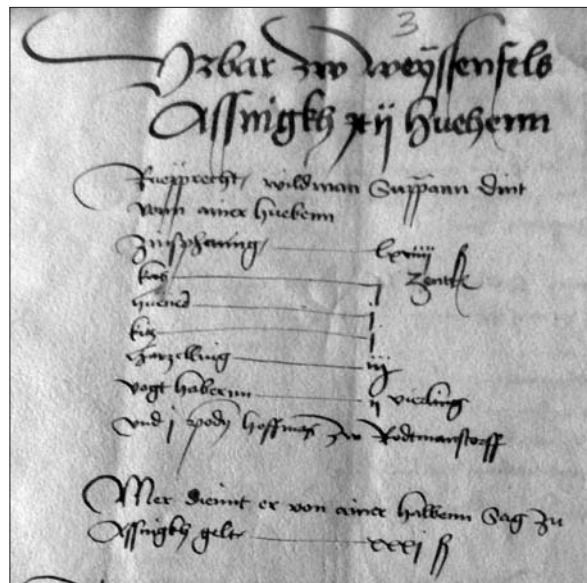 3
Urbar zw Weÿssenfels
Assnigkh xij huebenn
Rueprecht wildman Suppann dint
vonn ainer huebenn
Zinsphening lxiiij
käs j Zentn
huener j
kitz j
Harzelling iij
vogt habernn ij vierling
vnd j hoffmas zw Rodtmanstorff
Mer diennt er von ainer halbenn Sag zu
Assnigkh gelt xxxj ß